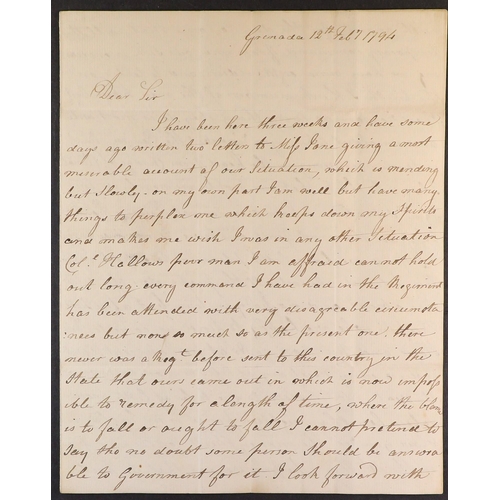 Grenada 12th Feby 1794
Dear Sir
I have been here three weeks and have some
days ago written two letters to Miss Jane giving a most
miserable account of our Situation, which is mending
but Slowly - on my own part I am well but have many
things to perplex me which keeps down my Spirits
and makes me wish I was in any other Situation
Col.l Hallows poor man I am affraid cannot hold
out long. every command I have had in the Regiment
has been attended with very disagreable circumsta
:nces but none so much so as the present one. there
never was a Regt. before sent to this country in the
State that ours came out in which is now imposs
ible to remedy for a length of time, where the blame
is to fall or ought to fall I cannot pretend to
say tho no doubt some person should be answera
ble to Government for it. I look forward with